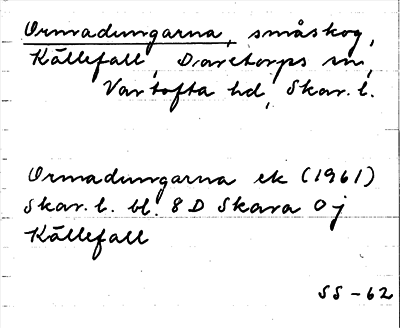 Ormadungarna, småskog,
Källefall, Daretorps sn,
Vartofta hd, Skar. l.
Ormadungarna ek (1961)
Skar. l. bl. 8 D Skara 0 j
Källefall
SS-62